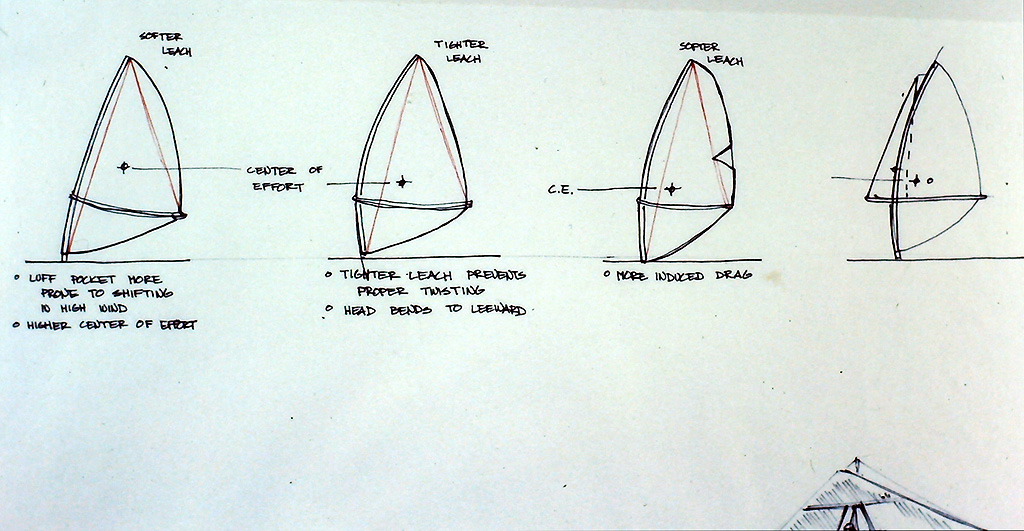 SOFTER
LEACH
TIGHTER
LEACH
SOFTER
LEACH
CENTER OF
EFFORT
C.E.
o LUFF POCKET MORE
PRONE TO SHIFTING
IN HIGH WIND
o HIGHER CENTER OF EFFORT
o TIGHTER LEACH PREVENTS
PROPER TWISTING
o HEAD BENDS TO LEEWARD.
o MORE INDUCED DRAG